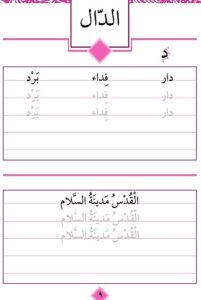 الدّال
دِ
دار فِداء بَرْد
دار فِداء بَرْد
دار فِداء بَرْد
الْقُدْسُ مَدينَةُ السَّلام
الْقُدْسُ مَدينَةُ السَّلام
الْقُدْسُ مَدينَةُ السَّلام
٩